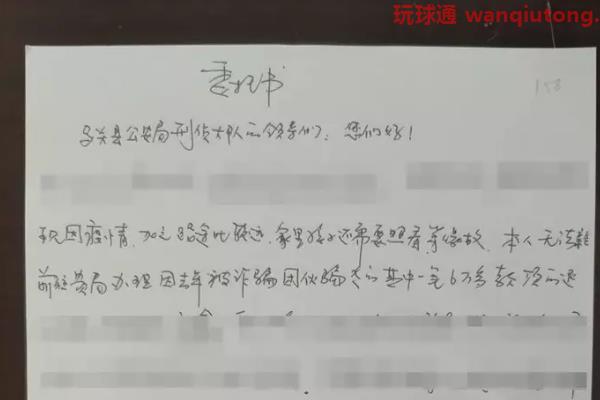 玩球通 wanqiutong.
委托书
158
关县公安局刑侦大队的领导们：您们好！
现因疫情，加之路途比较远，家里孩子还需要照看等缘故，本人无法
前往贵局办理因去年被诈骗团伙骗去的其中一笔6万多款项的退